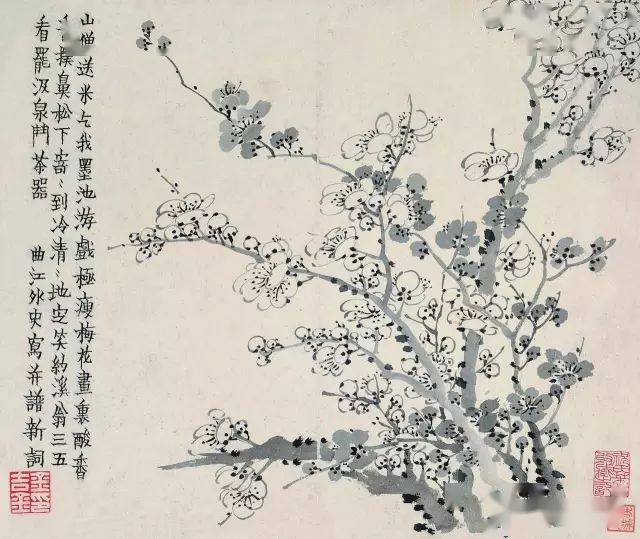 山僧送米乞我墨池游戲極瘦梅花畫裏酸香
撲鼻松下寄〻到冷清〻地定笑約溪翁三五
看罷汲泉鬥茶器
曲江外史寫并譜新詞
金吉金印